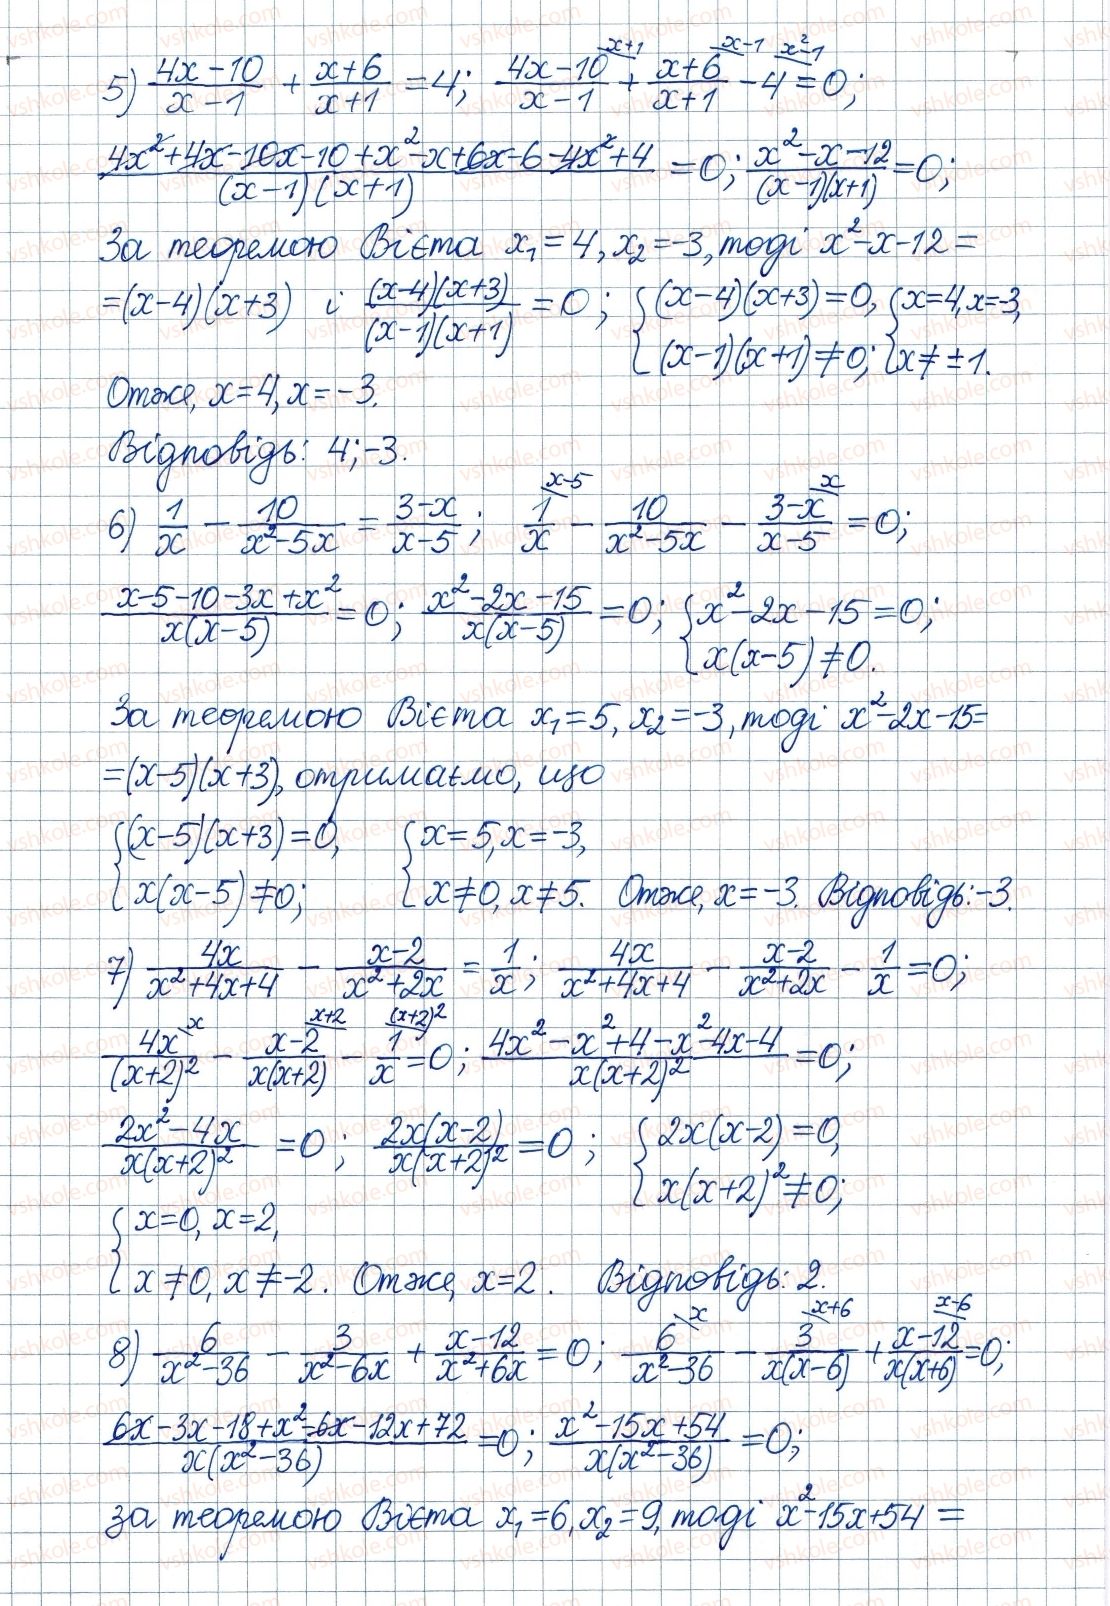 5) (4x-10)/(x-1) + (x+6)/(x+1) = 4; (4x-10)/(x-1) \x+1 + (x+6)/(x+1) \x-1 - 4 \x²-1 = 0;
(4x²+4x-10x-10+x²-x+6x-6-4x²+4)/((x-1)(x+1)) = 0; (x²-x-12)/((x-1)(x+1)) = 0;
За теоремою Вієта x₁=4, x₂=-3, тоді x²-x-12=
=(x-4)(x+3) і ((x-4)(x+3))/((x-1)(x+1)) = 0; { (x-4)(x+3)=0, (x-1)(x+1)≠0; { x=4, x=-3, x≠±1.
Отже, x=4, x=-3.
Відповідь: 4;-3.
6) 1/x - 10/(x²-5x) = (3-x)/(x-5); 1/x \x-5 - 10/(x²-5x) - (3-x)/(x-5) \x = 0;
(x-5-10-3x+x²)/(x(x-5)) = 0; (x²-2x-15)/(x(x-5)) = 0; { x²-2x-15=0; x(x-5)≠0.
За теоремою Вієта x₁=5, x₂=-3, тоді x²-2x-15=
=(x-5)(x+3), отримаємо, що
{ (x-5)(x+3)=0, { x=5, x=-3,
x(x-5)≠0; x≠0, x≠5. Отже, x=-3. Відповідь:-3.
7) 4x/(x²+4x+4) - (x-2)/(x²+2x) = 1/x; 4x/(x²+4x+4) - (x-2)/(x²+2x) - 1/x = 0;
4x/(x+2)² \x - (x-2)/(x(x+2)) \x+2 - 1/x \(x+2)² = 0; (4x²-x²+4-x²-4x-4)/(x(x+2)²) = 0;
(2x²-4x)/(x(x+2)²) = 0; (2x(x-2))/(x(x+2)²) = 0; { 2x(x-2)=0, x(x+2)²≠0;
{ x=0, x=2,
x≠0, x≠-2. Отже, x=2. Відповідь: 2.
8) 6/(x²-36) - 3/(x²-6x) + (x-12)/(x²+6x) = 0; 6/(x²-36) \x - 3/(x(x-6)) \x+6 + (x-12)/(x(x+6)) \x-6 = 0;
(6x-3x-18+x²-6x-12x+72)/(x(x²-36)) = 0; (x²-15x+54)/(x(x²-36)) = 0;
за теоремою Вієта x₁=6, x₂=9, тоді x²-15x+54=